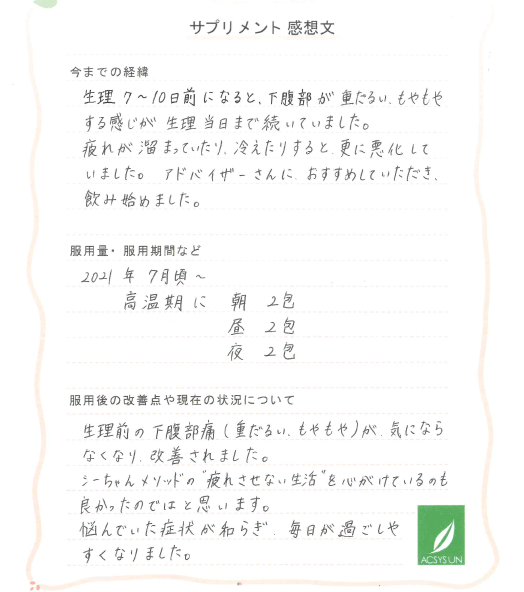 サプリメント 感想文
今までの経緯
生理 7〜10日前になると、下腹部が重だるい、もやもや
する感じが 生理当日まで続いていました。
疲れが溜まっていたり、冷えたりすると、更に悪化して
いました。 アドバイザーさんに、おすすめしていただき、
飲み始めました。
服用量・服用期間など
2021年 7月頃〜
高温期に 朝 2包
昼 2包
夜 2包
服用後の改善点や現在の状況について
生理前の下腹部痛(重だるい、もやもや)が、気になら
なくなり、改善されました。
シーちゃんメリッドの"疲れさせない生活"を心がけているのも
良かったのではと思います。
悩んでいた症状が和らぎ、毎日が過ごしや
すくなりました。
ACSYS UN